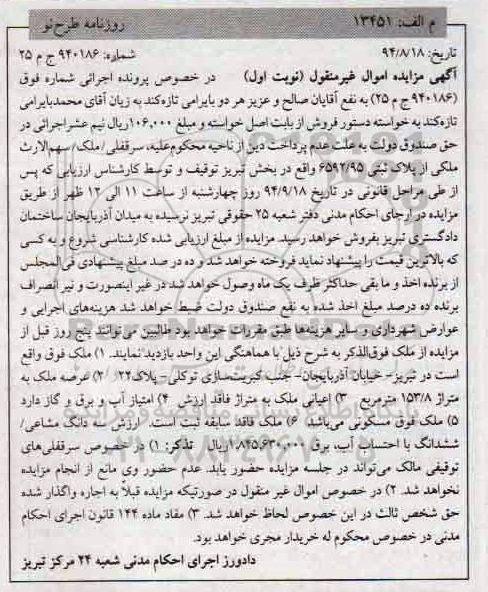 م الف: ۱۳۴۵۱
روزنامه طرح نو
تاریخ: ۹۴/۸/۱۸
شماره: ۹۴۰۱۸۶ ج م ۲۵
آگهی مزایده اموال غیرمنقول (نوبت اول) در خصوص پرونده اجرائی شماره فوق
(۹۴۰۱۸۶ ج م ۲۵) به نفع آقایان صالح و عزیز هر دو بایرامی تازه‌کند به زیان آقای محمدبایرامی
تازه‌کند به خواسته دستور فروش از بابت اصل خواسته و مبلغ ۱۰۶,۰۰۰ریال نیم عشراجرائی در
حق صندوق دولت به علت عدم پرداخت دین از ناحیه محکوم‌علیه، سرقفلی/ملک/سهم‌الارث
ملکی از پلاک ثبتی ۶۵۹۲/۹۵ واقع در بخش تبریز توقیف و توسط کارشناس ارزیابی که پس
از طی مراحل قانونی در تاریخ ۹۴/۹/۱۸ روز چهارشنبه از ساعت ۱۱ الی ۱۲ ظهر از طریق
مزایده در ارجای احکام مدنی دفتر شعبه ۲۵ حقوقی تبریز نرسیده به میدان آذربایجان ساختمان
دادگستری تبریز بفروش خواهد رسید. مزایده از مبلغ ارزیابی شده کارشناسی شروع و به کسی
که بالاترین قیمت را پیشنهاد نماید فروخته خواهد شد و ده در صد مبلغ پیشنهادی فی‌المجلس
از برنده اخذ و مابقی حداکثر ظرف یک ماه وصول خواهد شد در غیر اینصورت و نیر انصراف
برنده ده درصد مبلغ اخذ شده به نفع صندوق دولت ضبط خواهد شد هزینه‌های اجرایی و
عوارض شهرداری و سایر هزینه‌ها طبق مقررات خواهد بود طالبین می‌توانند پنج روز قبل از
مزایده از ملک فوق‌الذکر به شرح ذیل با هماهنگی این واحد بازدید نمایند. ۱) ملک فوق واقع
است در تبریز- خیابان آذربایجان- جنب کبریت‌سازی توکلی- پلاک۲۲ ۲) عرصه ملک به
متراژ ۱۵۳/۸ مترمربع ۳) اعیانی ملک به متراژ فاقد ارزش ۴) امتیاز آب و برق و گاز دارد
۵) ملک فوق مسکونی می‌باشد ۶) ملک فاقد سابقه ثبت است. ارزش سه دانگ مشاعی/
ششدانگ با احتساب آب، برق ۱/۸۴۵,۶۳۰,۰۰۰ریال تذکر: ۱) در خصوص سرقفلی‌های
توقیفی مالک می‌تواند در جلسه مزایده حضور یابد. عدم حضور وی مانع از انجام مزایده
نخواهد شد. ۲) در خصوص اموال غیر منقول در صورتیکه مزایده قبلاً به اجاره واگذار شده
حق شخص ثالث در این خصوص لحاظ خواهد شد. ۳) مفاد ماده ۱۴۴ قانون اجرای احکام
مدنی در خصوص محکوم له خریدار مجری خواهد بود.
دادورز اجرای احکام مدنی شعبه ۲۴ مرکز تبریز